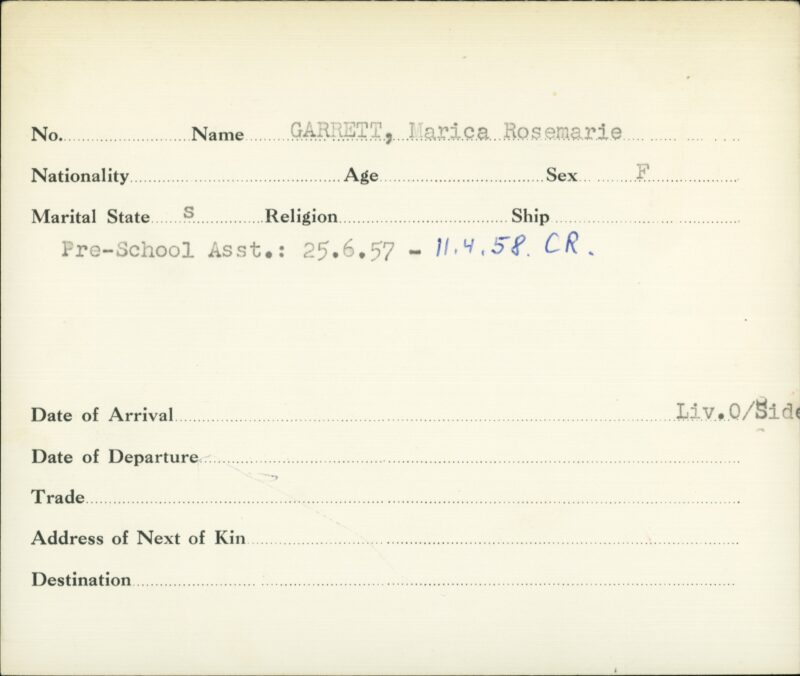 No. Name GARRETT, Marica Rosemarie
Nationality Age Sex F
Marital State S Religion Ship
Pre-School Asst.: 25.6.57 - 11.4.58. CR.
Date of Arrival Liv.O/Side
Date of Departure
Trade
Address of Next of Kin
Destination